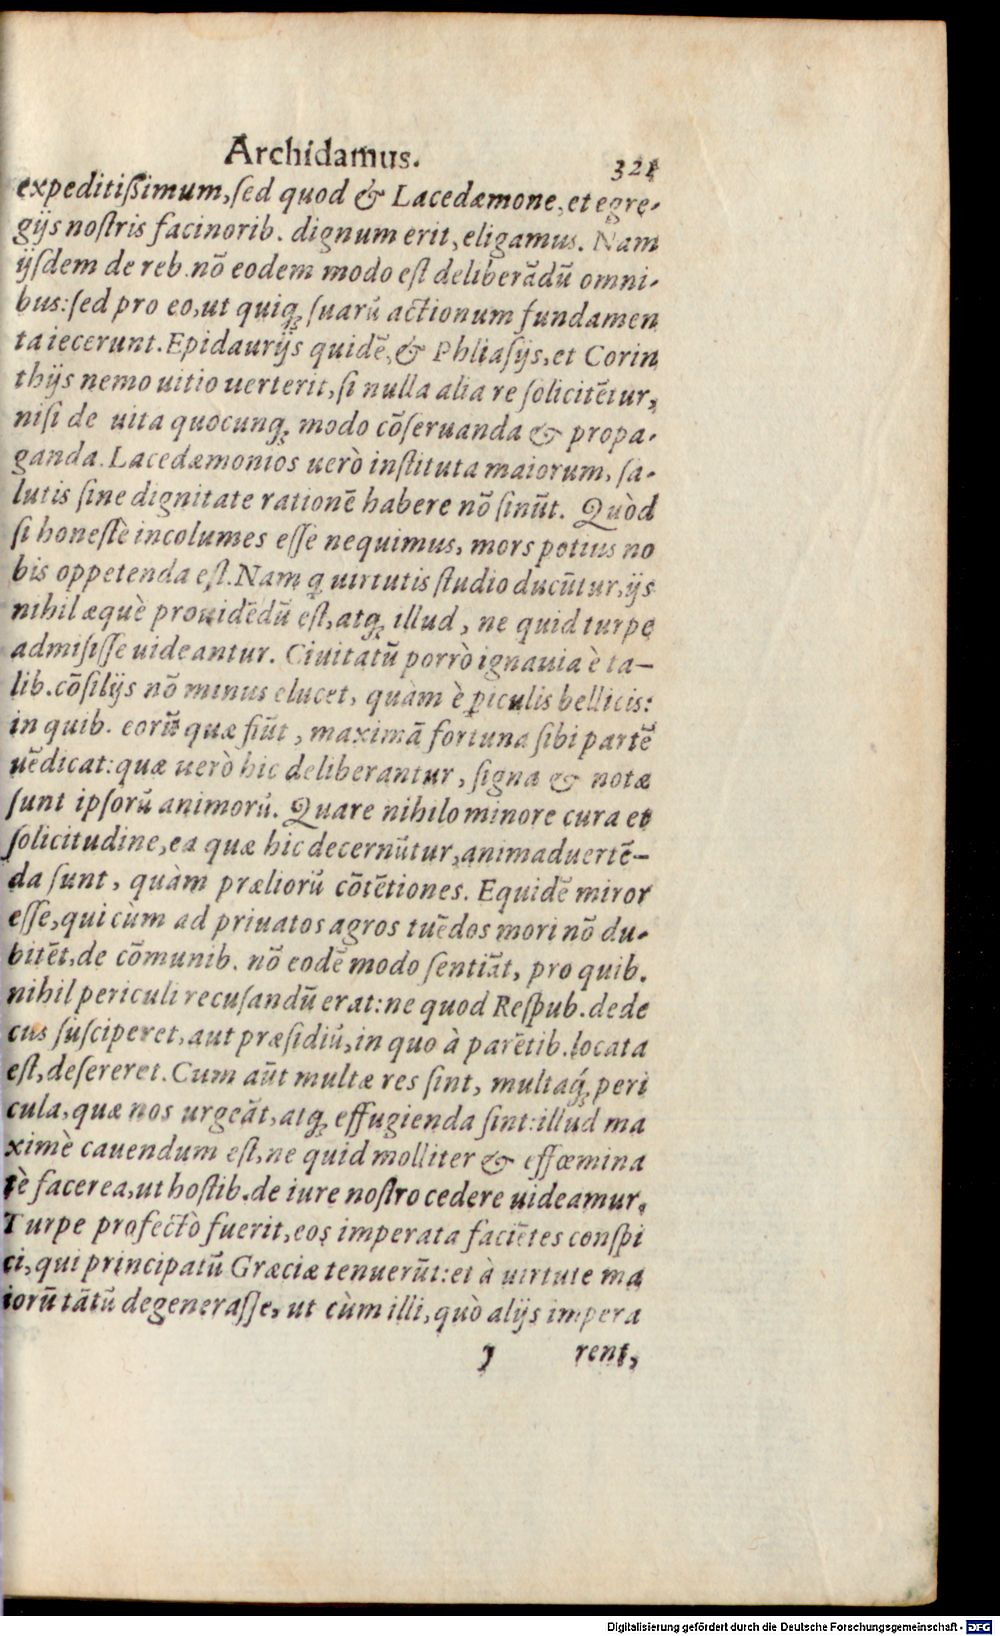 Archidamus. 321
expeditißimum, ſed quod & Lacedæmone, et egre-
gijs noſtris facinorib. dignum erit, eligamus. Nam
ijſdem de reb. nõ eodem modo eſt deliberãdũ omni-
bus: ſed pro eo, ut quiq; ſuarũ actionum fundamen
ta iecerunt. Epidaurijs quidẽ, & Phliaſijs, et Corin
thijs nemo uitio uerterit, ſi nulla alia re ſolicitẽtur,
niſi de uita quocunq; modo cõſeruanda & propa-
ganda. Lacedæmonios uerò inſtituta maiorum, ſa-
lutis ſine dignitate rationẽ habere nõ ſinũt. Quòd
ſi honeſtè incolumes eſſe nequimus, mors potius no
bis oppetenda eſt. Nam q̃ uirtutis ſtudio ducũtur, ijs
nihil æquè prouidẽdũ eſt, atq; illud, ne quid turpe
admiſiſſe uideantur. Ciuitatũ porrò ignauia è ta-
lib. cõſilijs nõ minus elucet, quàm è ꝑiculis bellicis:
in quib. eorũ quæ fiũt, maximã fortuna ſibi partẽ
uẽdicat: quæ uerò hic deliberantur, ſigna & notæ
ſunt ipſorũ animorũ. Quare nihilo minore cura et
ſolicitudine, ea quæ hic decernũtur, animaduertẽ-
da ſunt, quàm præliorũ cõtẽtiones. Equidẽ miror
eſſe, qui cùm ad priuatos agros tuẽdos mori nõ du-
bitẽt, de cõmunib. nõ eodẽ modo ſentiãt, pro quib.
nihil periculi recuſandũ erat: ne quod Reſpub. dede
cus ſuſciperet, aut præſidiũ, in quo à parẽtib. locata
eſt, deſereret. Cum aũt multæ res ſint, multaq́; peri
cula, quæ nos urgeãt, atq; effugienda ſint: illud ma
ximè cauendum eſt, ne quid molliter & effœmina
tè facere a, ut hoſtib. de iure noſtro cedere uideamur.
Turpe profectò fuerit, eos imperata faciẽtes conſpi
ci, qui principatũ Græciæ tenuerũt: et à uirtute ma
iorũ tãtũ degeneraſſe, ut cùm illi, quò alijs impera
y rent,
Digitalisierung gefördert durch die Deutsche Forschungsgemeinschaft - DFG